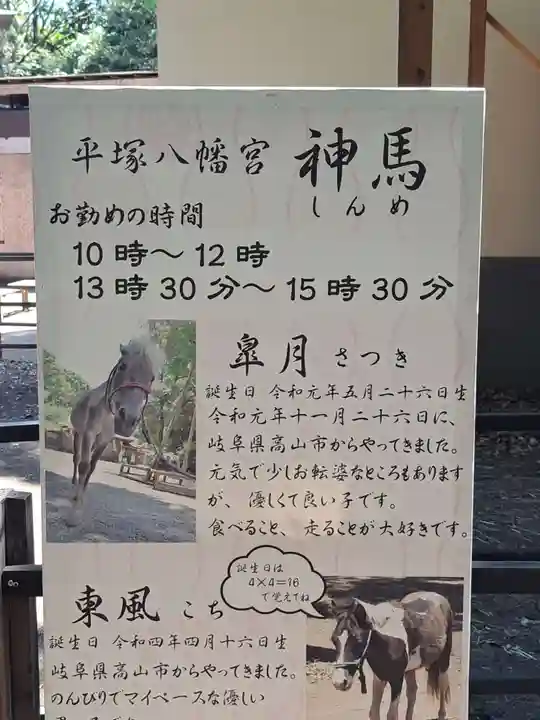 平塚八幡宮 神馬
しんめ
お勤めの時間
10時〜12時
13時30分〜15時30分
皐月 さつき
誕生日 令和元年五月二十六日生
令和元年十一月二十六日に、
岐阜県高山市からやってきました。
元気で少しお転婆なところもあります
が、優しくて良い子です。
食べること、走ることが大好きです。
誕生日は
4×4=16
で覚えてね
東風 こち
誕生日 令和四年四月十六日生
岐阜県高山市からやってきました。
のんびりでマイペースな優しい